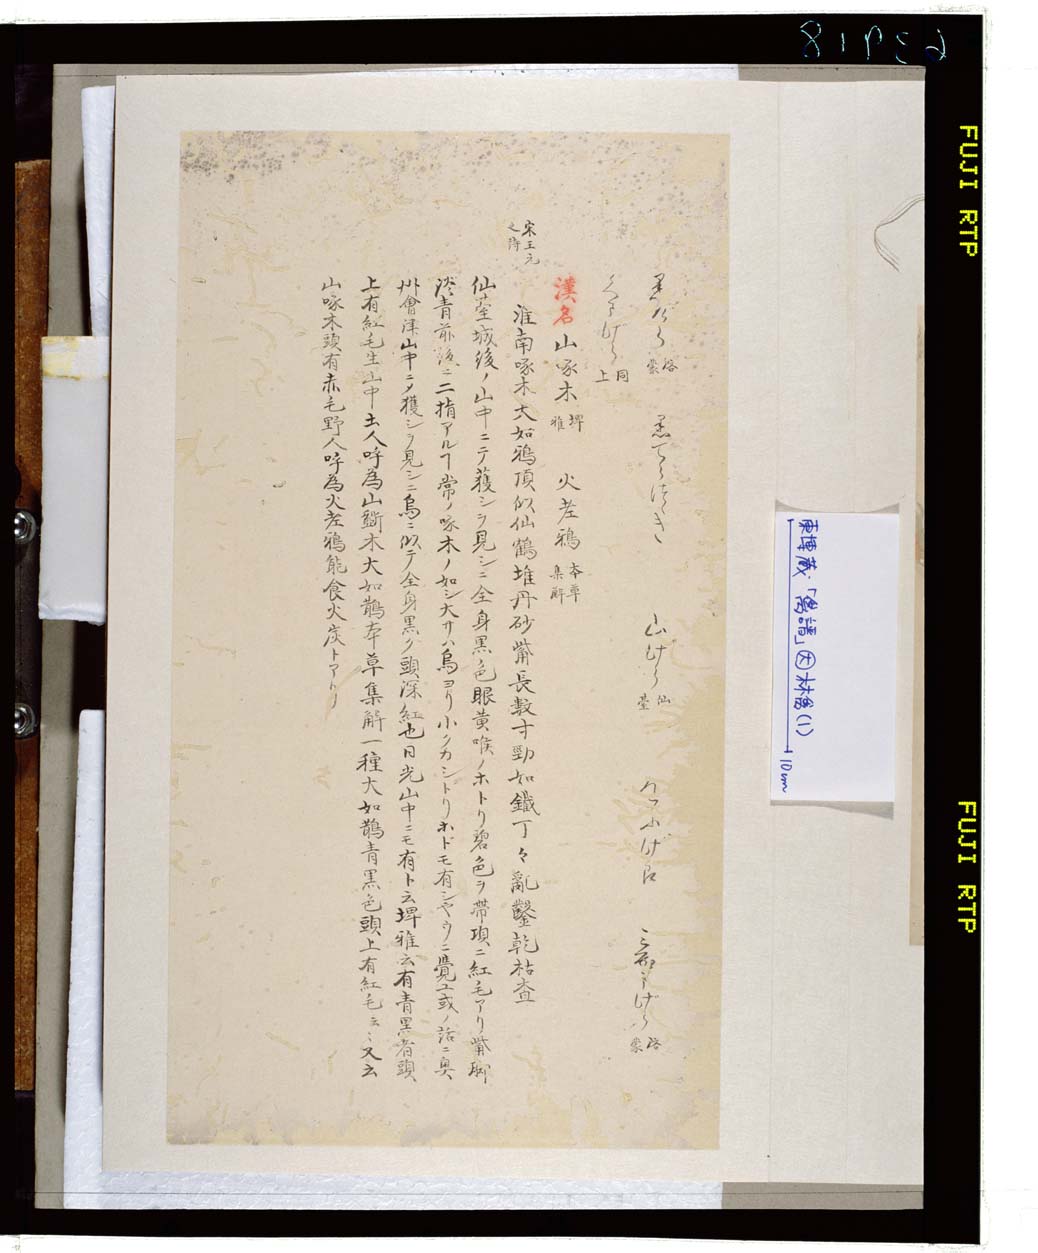 黒げら 啓蒙 黒てらつゝき 山げら 仙臺 くまげら 啓蒙
くろげら 同上
漢名 山啄木 埤雅 火老鴉 本草集解
宋王元之詩
淮南啄木大如鴉頂似仙鶴堆丹砂觜長數寸勁如鐵丁々亂鑿乾枯査
仙䑓城後ノ山中ニテ獲シヲ見シニ全身黒色眼黄喉ノホトリ碧色ヲ帯項ニ紅毛アリ觜脚
淡青前後ニ二指アルヿ常ノ啄木ノ如シ大サハ烏ヨリ小クカシトリホドモ有シヤウニ覺ユ或ノ話ニ奥
州會津山中ニ〆獲シヲ見シニ烏ニ似テ全身黒ク頭深紅也日光山中ニモ有ト云埤雅云有青黒者頭
上有紅毛生山中土人呼為山斵木大如鵲本草集解一種大如鵲青黒色頭上有紅毛云々又云
山啄木頭有赤毛野人呼為火老鴉能食火炭トアリ
東博蔵「禽譜」㊛林禽(1)
10cm
FUJI RTP
FUJI RTP